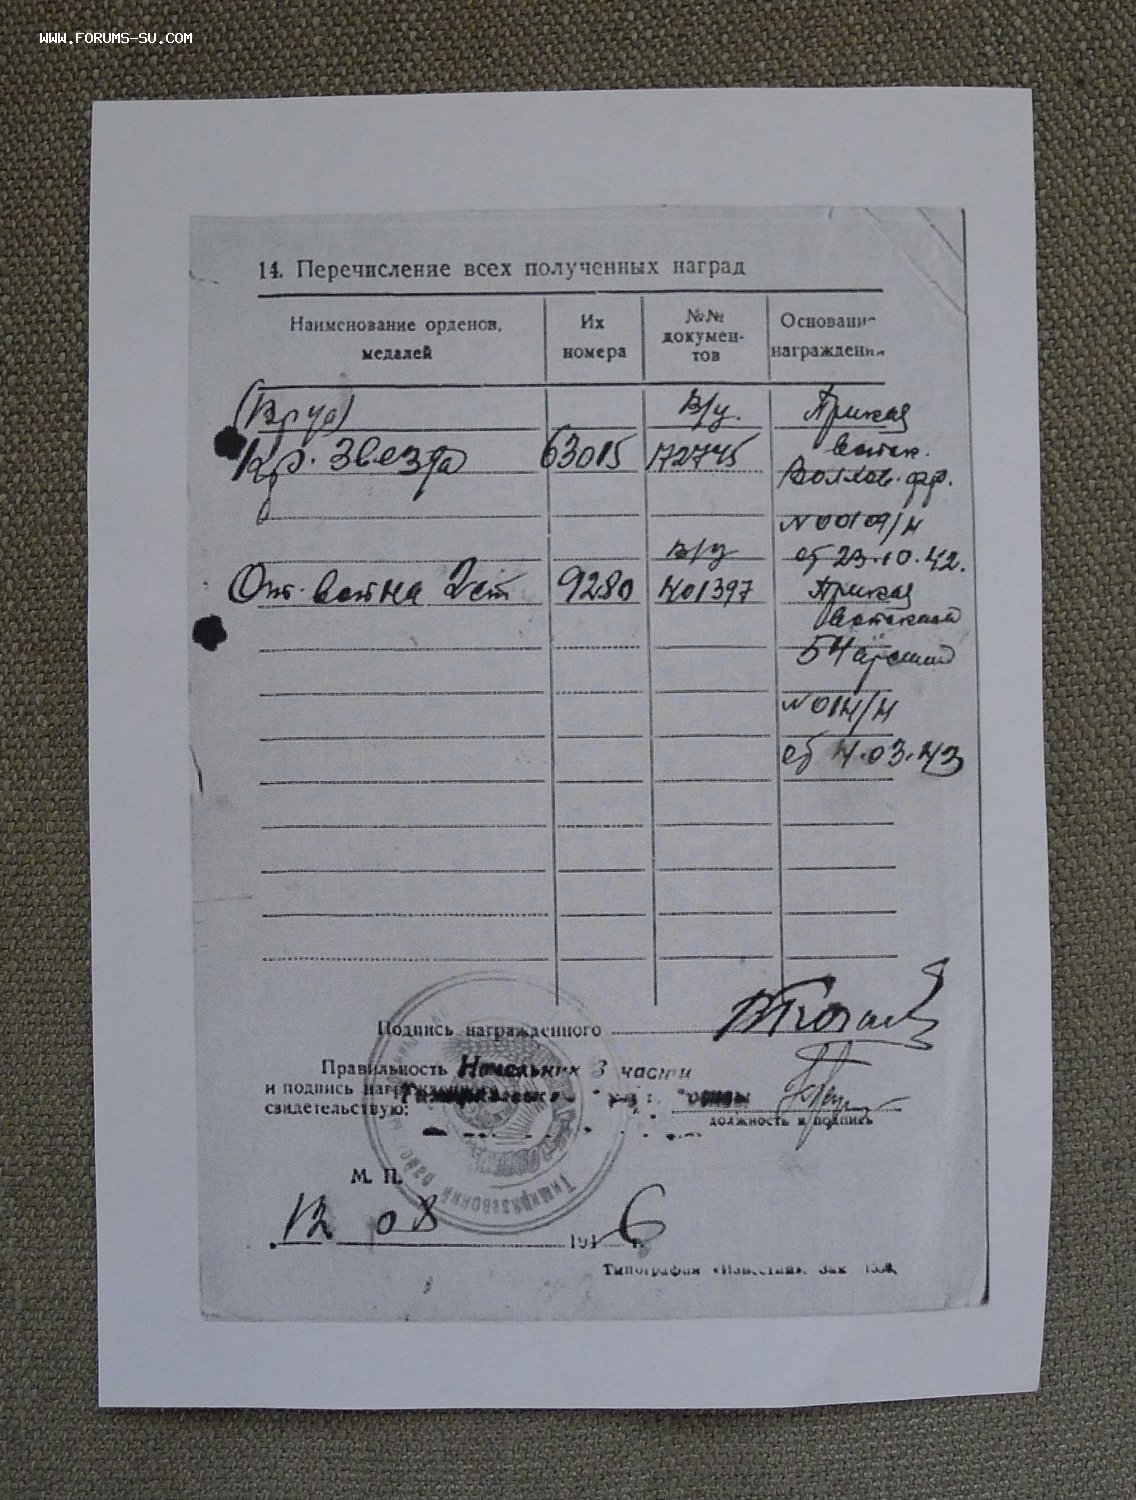 WWW.FORUMS-SU.COM
14. Перечисление всех полученных наград
Наименование орденов, медалей
Их номера
№№ документов
Основание награждения
В/у. Приказ
Кр. Звезда 63015 172745 войск.
Волхов. фр.
N 00109/н
в/у от 23.10.42.
От. война 2 ст 9280 401397 Приказ
войскам
54 армии
от 4.03.43
Подпись награжденного
Правильность Начальник 3 части
и подпись награжденного
свидетельствую:
должность и подпись
М. П.
12 08 194 6 г.
Типография «Известия». Зак